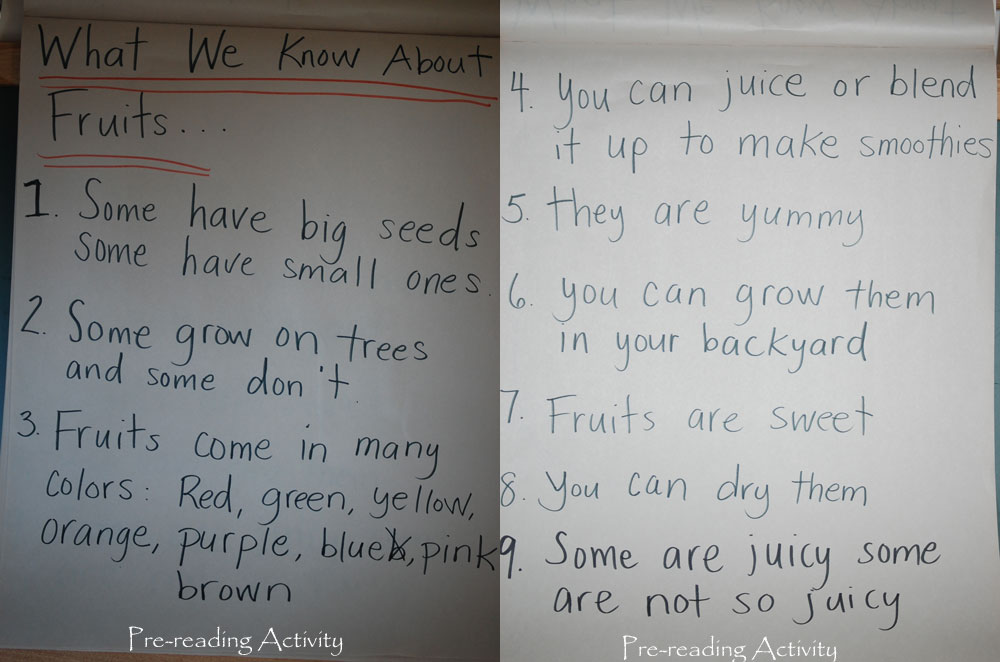 What We Know About
Fruits...
1. Some have big seeds
some have small ones.
2. Some grow on trees
and some don't.
3. Fruits come in many
colors: Red, green, yellow,
orange, purple, blue, pink
brown
Pre-reading Activity
4. You can juice or blend
it up to make smoothies
5. they are yummy
6. you can grow them
in your backyard
7. Fruits are sweet
8. You can dry them
9. Some are juicy some
are not so juicy
Pre-reading Activity